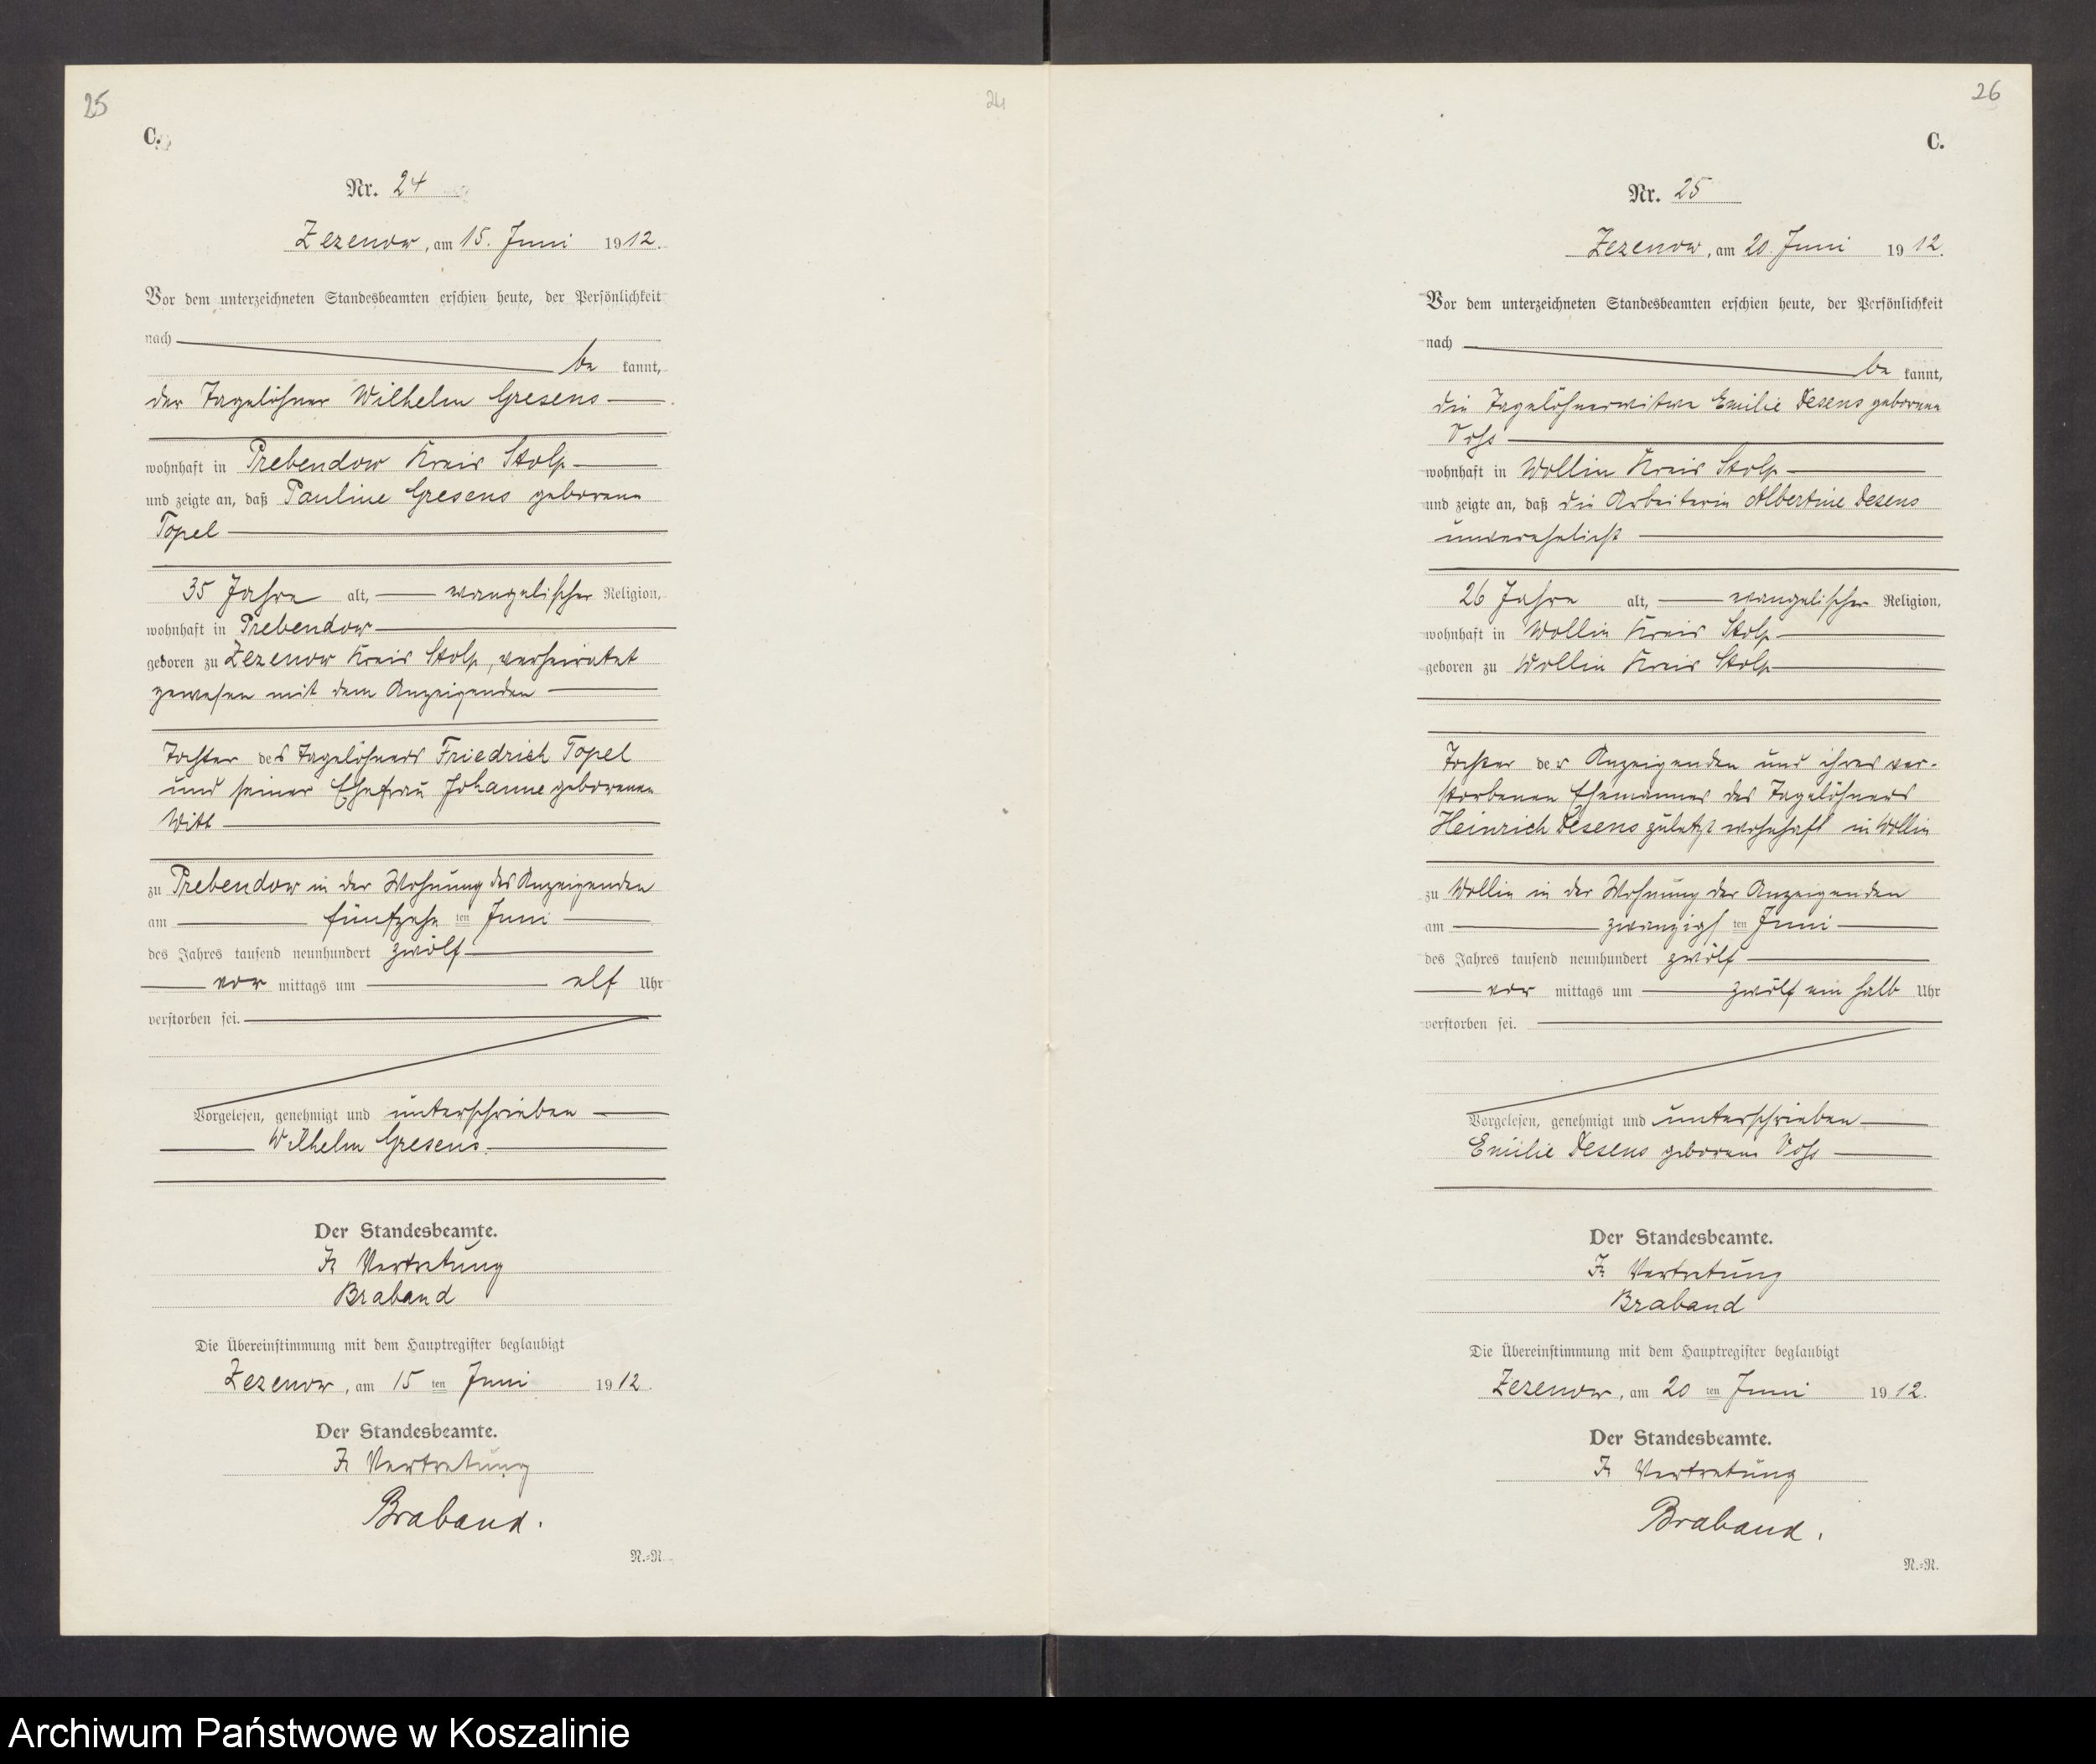 25
C.
Nr. 24
Zezenow, am 15. Juni 1912.
Vor dem unterzeichneten Standesbeamten erschien heute, der Persönlichkeit
nach
be kannt,
der Tagelöhner Wilhelm Gresens
wohnhaft in Prebendow Kreis Stolp
und zeigte an, daß Pauline Gresens geborene
Topel
35 Jahre alt, evangelischer Religion,
wohnhaft in Prebendow
geboren zu Zezenow Kreis Stolp, verheiratet
gewesen mit dem Anzeigenden
Tochter des Tagelöhners Friedrich Topel
und seiner Ehefrau Johanne geborenen
Witt
zu Prebendow in der Wohnung des Anzeigenden
am fünfzehn ten Juni
des Jahres tausend neunhundert zwölf
vor mittags um elf Uhr
verstorben sei.
Vorgelesen, genehmigt und unterschrieben
Wilhelm Gresens.
Der Standesbeamte.
In Vertretung
Braband
Die Übereinstimmung mit dem Hauptregister beglaubigt
Zezenow, am 15 ten Juni 1912.
Der Standesbeamte.
In Vertretung
Braband.
N.=R.
24
26
C.
Nr. 25
Zezenow, am 20. Juni 1912.
Vor dem unterzeichneten Standesbeamten erschien heute, der Persönlichkeit
nach
be kannt,
die Tagelöhnerwitwe Emilie Desens geborene
Voss
wohnhaft in Wollin Kreis Stolp
und zeigte an, daß die Arbeiterin Albertine Desens
unverehelicht
26 Jahre alt, evangelischer Religion,
wohnhaft in Wollin Kreis Stolp
geboren zu Wollin Kreis Stolp
Tochter der Anzeigenden und ihres ver-
storbenen Ehemannes des Tagelöhners
Heinrich Desens zuletzt wohnhaft in Wollin
zu Wollin in der Wohnung der Anzeigenden
am zwanzigs ten Juni
des Jahres tausend neunhundert zwölf
vor mittags um zwölf ein halb Uhr
verstorben sei.
Vorgelesen, genehmigt und unterschrieben
Emilie Desens geborene Voss
Der Standesbeamte.
In Vertretung
Braband
Die Übereinstimmung mit dem Hauptregister beglaubigt
Zezenow, am 20 ten Juni 1912.
Der Standesbeamte.
In Vertretung
Braband.
N.=R.
Archiwum Państwowe w Koszalinie